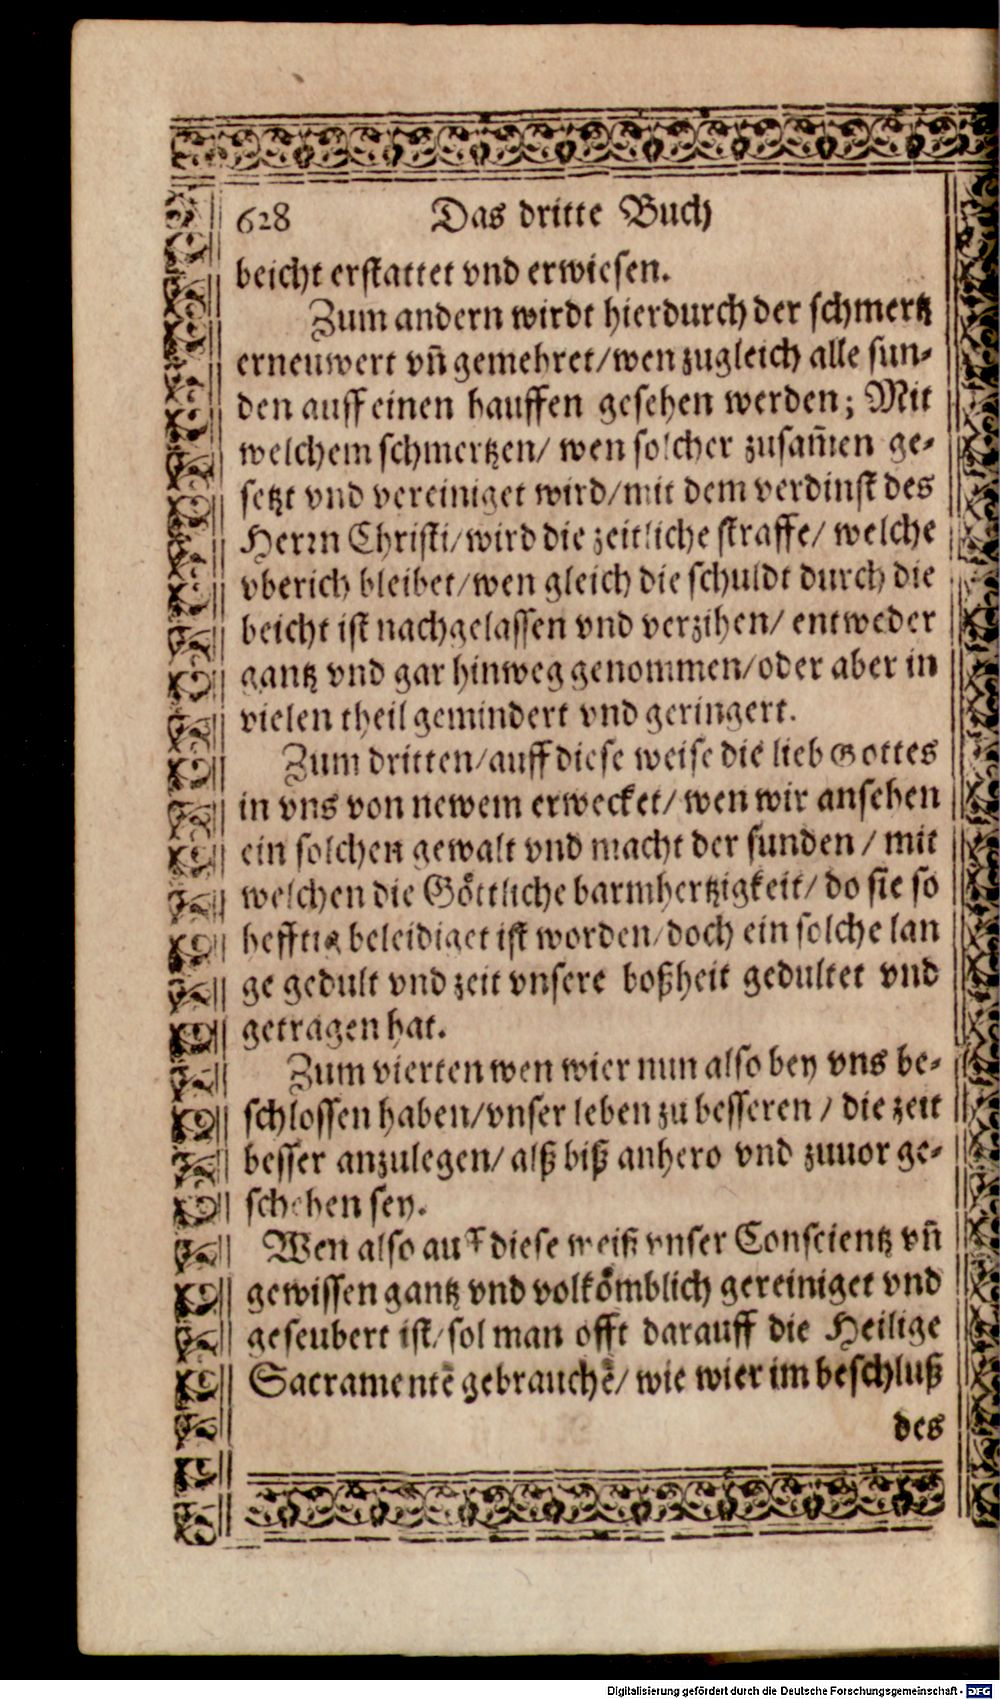 628 Das dritte Buch
beicht erstattet vnd erwiesen.
Zum andern wirdt hierdurch der schmertz
erneuwert vñ gemehret/wen zugleich alle sun-
den auff einen hauffen gesehen werden; Mit
welchem schmertzen/ wen solcher zusam̃en ge-
setzt vnd vereiniget wird/mit dem verdinst des
Herrn Christi/wird die zeitliche straffe/ welche
vberich bleibet/wen gleich die schuldt durch die
beicht ist nachgelassen vnd verzihen/ entweder
gantz vnd gar hinweg genommen/oder aber in
vielen theil gemindert vnd geringert.
Zum dritten/auff diese weise die lieb Gottes
in vns von newem erwecket/ wen wir ansehen
ein solchen gewalt vnd macht der sunden / mit
welchen die Göttliche barmhertzigkeit/ do sie so
hefftig beleidiget ist worden/doch ein solche lan
ge gedult vnd zeit vnsere boßheit gedultet vnd
getragen hat.
Zum vierten wen wier nun also bey vns be-
schlossen haben/vnser leben zu besseren / die zeit
besser anzulegen/ alß biß anhero vnd zuuor ge-
schehen sey.
Wen also auff diese weiß vnser Conscientz vñ
gewissen gantz vnd volkömblich gereiniget vnd
geseubert ist/sol man offt darauff die Heilige
Sacramentẽ gebrauchẽ/ wie wier im beschluß
des
Digitalisierung gefördert durch die Deutsche Forschungsgemeinschaft - DFG